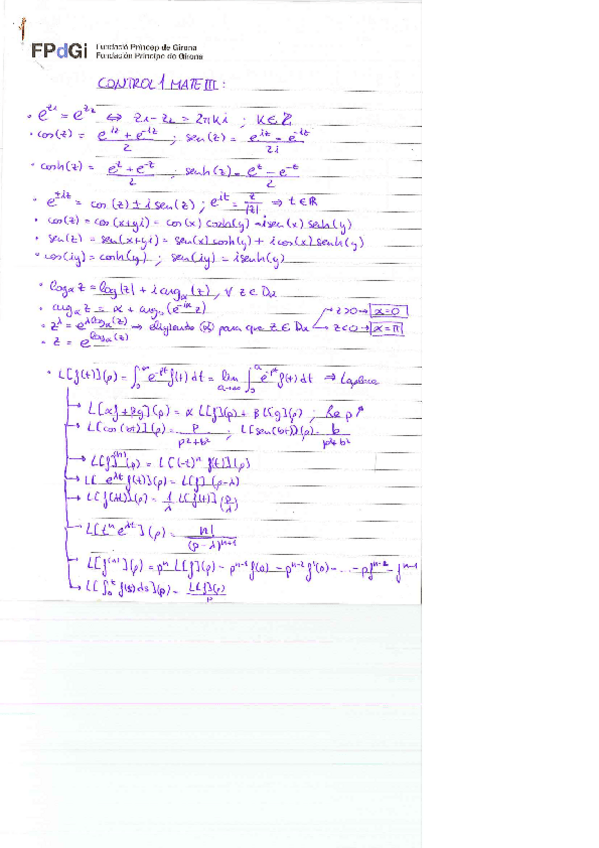 FPdGi Fundació Príncep de Girona
Fundación Príncipe de Girona
CONTROL 1 MATE III:
• e^{z₁} = e^{z₂} ⇔ z₁ - z₂ = 2πki ; k ∈ ℤ
• cos(z) = (e^{iz} + e^{-iz})/2 ; sen(z) = (e^{iz} - e^{-iz})/2i
• cosh(z) = (e^z + e^{-z})/2 ; senh(z) = (e^z - e^{-z})/2
• e^{±iz} = cos(z) ± i sen(z) ; e^{it} = z/|z| ⇒ t ∈ ℝ
• cos(z) = cos(x+yi) = cos(x) cosh(y) - i sen(x) senh(y)
• sen(z) = sen(x+yi) = sen(x) cosh(y) + i cos(x) senh(y)
• cos(iy) = cosh(y) ; sen(iy) = i senh(y)
• log_α z = log|z| + i arg_α(z), ∀ z ∈ D_α
• arg_α z = α + arg_0(e^{-iα} z)
• z^λ = e^{λ log_α(z)} → eligiendo (α) para que z ∈ D_α → z>0 → α=0
→ z<0 → α=π
• z = e^{log_α(z)}
• L[f(t)](p) = ∫₀^∞ e^{-pt} f(t) dt = lim_{a→∞} ∫₀^a e^{-pt} f(t) dt ⇒ Laplace
→ L[αf + βg](p) = α L[f](p) + β L[g](p) ; Re p
→ L[cos(bt)](p) = p/(p²+b²) ; L[sen(bt)](p) = b/(p²+b²)
→ L[f]^{(n)}(p) = L[(-t)^n f(t)](p)
→ L[e^{λt} f(t)](p) = L[f](p-λ)
→ L[f(λt)](p) = 1/λ L[f(t)](p/λ)
→ L[t^n e^{λt}](p) = n!/(p-λ)^{n+1}
→ L[f^{(n)}](p) = p^n L[f](p) - p^{n-1} f(0) - p^{n-2} f'(0) - ... - p f^{n-2} - f^{n-1}
→ L[∫₀^t f(s) ds](p) = L[f](p)/p